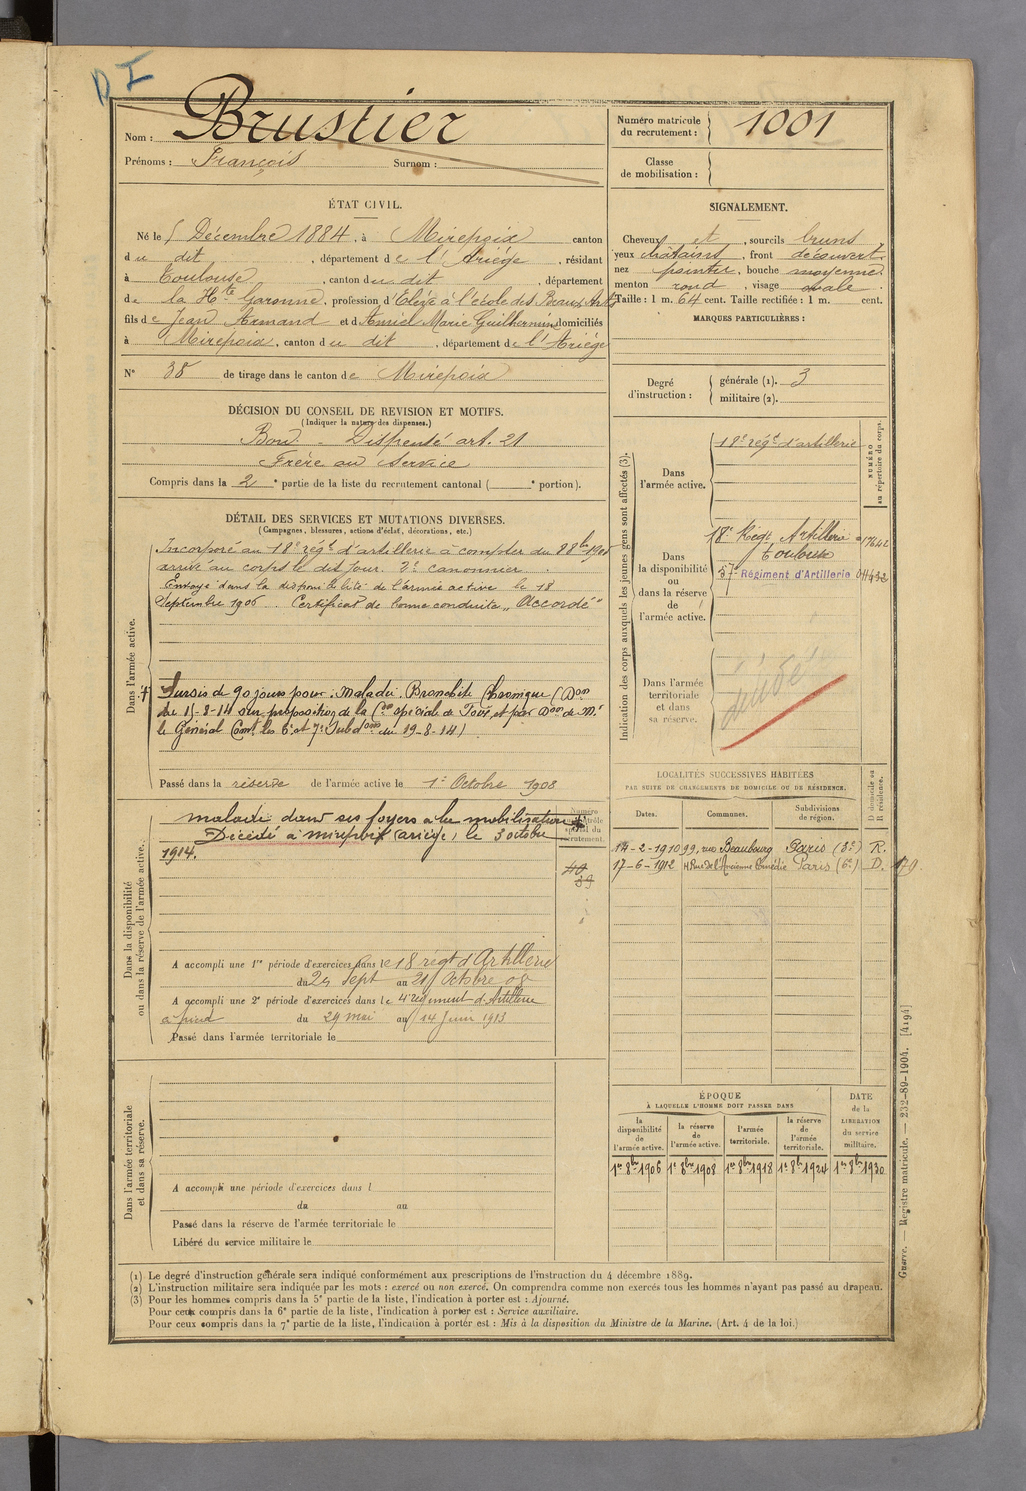 DI
Nom : Brustier
Prénoms : François Surnom :
Numéro matricule du recrutement : 1001
Classe de mobilisation :
ÉTAT CIVIL.
Né le 5 Décembre 1884, à Mirepoix canton
du dit, département de l'Ariège, résidant
à Toulouse, canton du dit, département
de la Hte Garonne, profession d'Elève à l'école des Beaux Arts
fils de Jean Armand et d'Amiel Marie Guilhermine domiciliés
à Mirepoix, canton du dit, département de l'Ariège
N° 38 de tirage dans le canton de Mirepoix
DÉCISION DU CONSEIL DE REVISION ET MOTIFS.
(Indiquer la nature des dispenses.)
Bon - Dispensé art. 21
Frère au Service
Compris dans la 2e partie de la liste du recrutement cantonal ( e portion).
DÉTAIL DES SERVICES ET MUTATIONS DIVERSES.
(Campagnes, blessures, actions d'éclat, décorations, etc.)
Dans l'armée active.
Incorporé au 18e régt d'artillerie à compter du 8 8bre 1905
arrivé au corps le dit jour. 2e canonnier.
Envoyé dans la disponibilité de l'armée active le 18
Septembre 1906. Certificat de bonne conduite „Accordé"
Sursis de 90 jours pour. Maladie. Bronchite Chronique (Don
du 15-8-14 sur proposition de la Con spéciale de Foix et par Don de Mr
le Général Comt les 6e et 7e Subdons du 19-8-14)
Passé dans la réserve de l'armée active le 1er Octobre 1908
Dans la disponibilité ou dans la réserve de l'armée active.
Numéro du contrôle spécial du recrutement.
malade dans ses foyers à la mobilisation
Décédé à mirepoix (ariège) le 3 octobre
1914.
40
39
A accompli une 1re période d'exercices dans le 18 régt d'Artillerie
du 24 Sept au 21 Octobre 08
A accompli une 2e période d'exercices dans le 4e régiment d'Artillerie
à pied du 29 mai au 14 Juin 1913
Passé dans l'armée territoriale le
Dans l'armée territoriale et dans sa réserve.
A accompli une période d'exercices dans l
du au
Passé dans la réserve de l'armée territoriale le
Libéré du service militaire le
SIGNALEMENT.
Cheveux et, sourcils bruns
yeux châtains, front découvert
nez pointu, bouche moyenne
menton rond, visage ovale.
Taille : 1 m. 64 cent. Taille rectifiée : 1 m. cent.
MARQUES PARTICULIÈRES :
Degré d'instruction : générale (1). 3
militaire (2).
Indication des corps auxquels les jeunes gens sont affectés (3).
NUMÉRO au répertoire du corps.
Dans l'armée active.
18e régt d'artillerie
Dans la disponibilité ou dans la réserve de l'armée active.
18e Régt Artillerie
Toulouse
57e Régiment d'Artillerie
Dans l'armée territoriale et dans sa réserve.
LOCALITÉS SUCCESSIVES HABITÉES
PAR SUITE DE CHANGEMENTS DE DOMICILE OU DE RÉSIDENCE.
Dates. Communes. Subdivisions de région. D Domicile ou R résidence.
14-2-1910 99, rue Beaubourg Paris (3e) R.
17-6-1912 4 Rue de l'Ancienne Comédie Paris (6e) D.
ÉPOQUE
À LAQUELLE L'HOMME DOIT PASSER DANS
la disponibilité de l'armée active.
la réserve de l'armée active.
l'armée territoriale.
la réserve de l'armée territoriale.
DATE de la LIBÉRATION du service militaire.
1er 8bre 1906 1er 8bre 1908 1er 8bre 1918 1er 8bre 1924 1er 8bre 1930
(1) Le degré d'instruction générale sera indiqué conformément aux prescriptions de l'instruction du 4 décembre 1889.
(2) L'instruction militaire sera indiquée par les mots : exercé ou non exercé. On comprendra comme non exercés tous les hommes n'ayant pas passé au drapeau.
(3) Pour les hommes compris dans la 5e partie de la liste, l'indication à porter est : Ajourné.
Pour ceux compris dans la 6e partie de la liste, l'indication à porter est : Service auxiliaire.
Pour ceux compris dans la 7e partie de la liste, l'indication à porter est : Mis à la disposition du Ministre de la Marine. (Art. 4 de la loi.)
Guerre. — Registre matricule. — 232-89-1904. [4194]